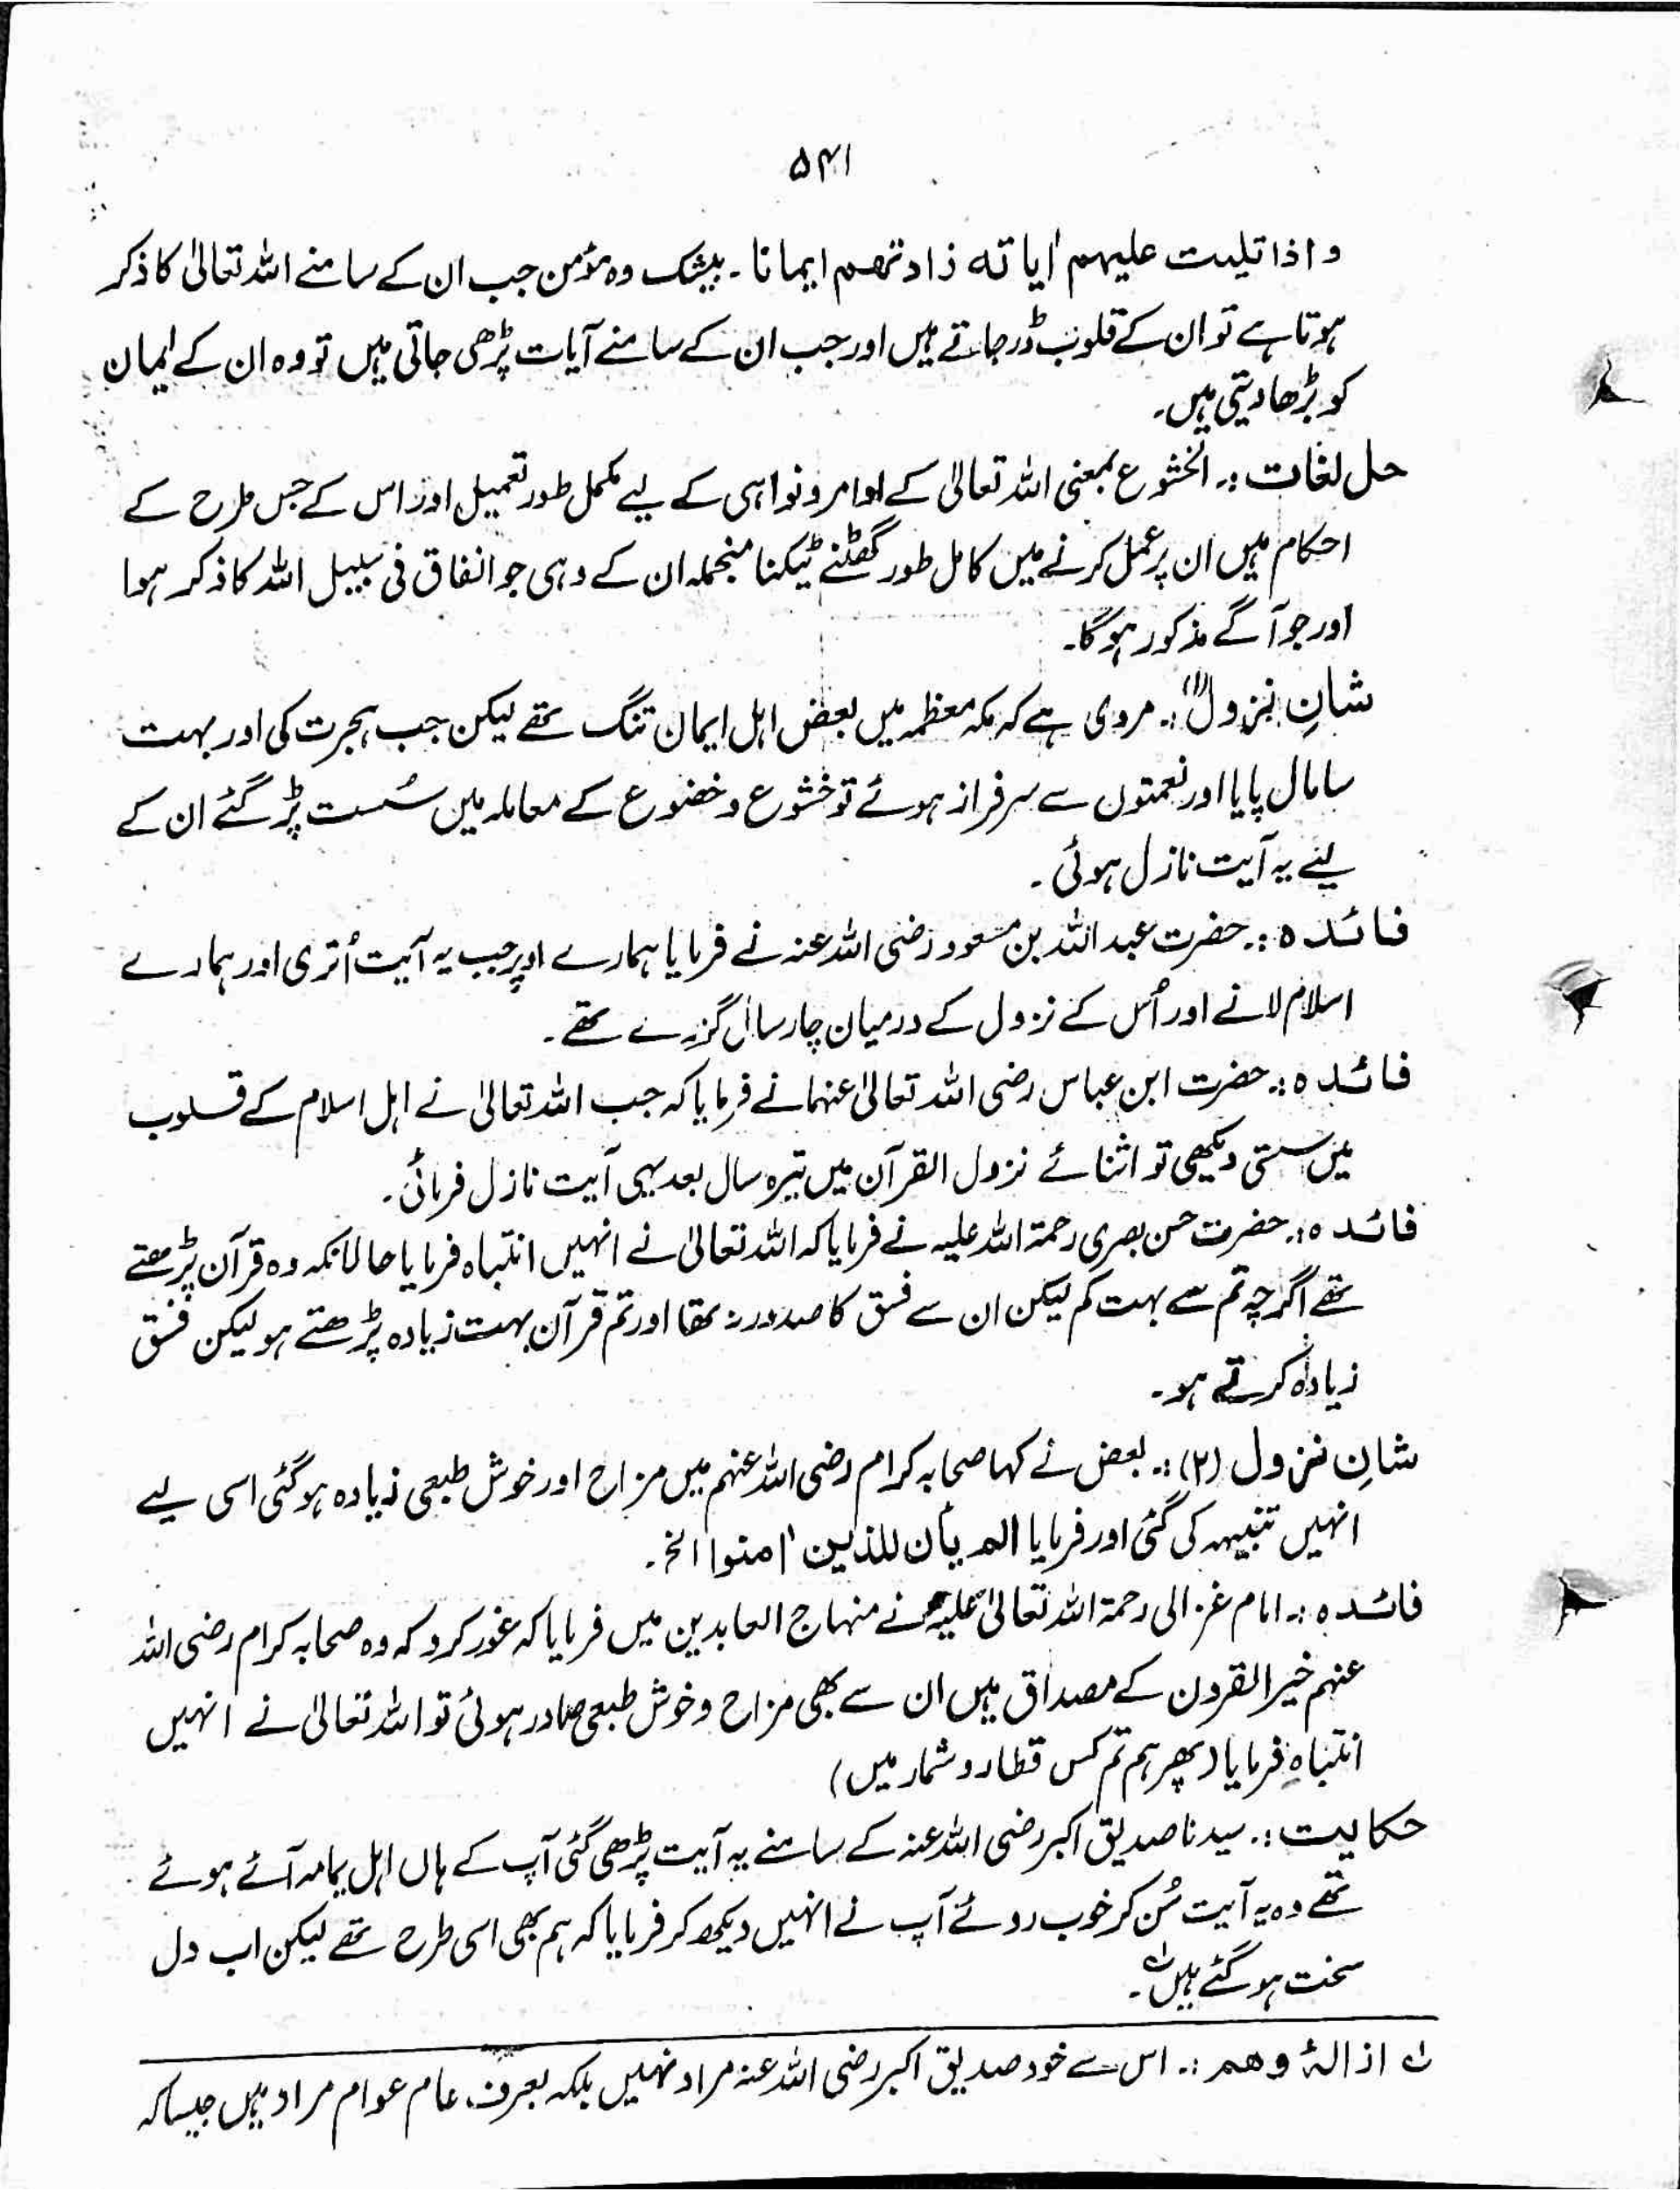 ۵۴۱
و اذا تلیت علیہم اٰیاتہ زادتھم ایمانا ۔ بیشک وہ مؤمن جب ان کے سامنے اللہ تعالیٰ کا ذکر
ہوتا ہے تو ان کے قلوب ڈر جاتے ہیں اور جب ان کے سامنے آیات پڑھی جاتی ہیں تو وہ ان کے ایمان
کو بڑھا دیتی ہیں۔
حل لغات :۔ الخشوع بمعنی اللہ تعالیٰ کے اوامر و نواہی کے لیے مکمل طور تعمیل اور اس کے جس طرح کے
احکام ہیں ان پر عمل کرنے میں کامل طور گھٹنے ٹیکنا منجملہ ان کے وہی جو انفاق فی سبیل اللہ کا ذکر ہوا
اور جو آگے مذکور ہوگا۔
شانِ نزول (۱) :۔ مروی ہے کہ مکہ معظمہ میں بعض اہل ایمان تنگ تھے لیکن جب ہجرت کی اور بہت
سا مال پایا اور نعمتوں سے سرفراز ہوئے تو خشوع و خضوع کے معاملہ میں سُست پڑ گئے ان کے
لیے یہ آیت نازل ہوئی ۔
فائدہ :۔ حضرت عبد اللہ بن مسعود رضی اللہ عنہ نے فرمایا ہمارے اوپر جب یہ آیت اُتری اور ہمارے
اسلام لانے اور اُس کے نزول کے درمیان چار سال گزرے تھے ۔
فائدہ :۔ حضرت ابن عباس رضی اللہ تعالیٰ عنہما نے فرمایا کہ جب اللہ تعالیٰ نے اہل اسلام کے قلوب
میں سستی دیکھی تو اثنائے نزول القرآن میں تیرہ سال بعد یہی آیت نازل فرمائی ۔
فائدہ :۔ حضرت حسن بصری رحمۃ اللہ علیہ نے فرمایا کہ اللہ تعالیٰ نے انہیں انتباہ فرمایا حالانکہ وہ قرآن پڑھتے
تھے اگرچہ تم سے بہت کم لیکن ان سے فسق کا صدور نہ تھا اور تم قرآن بہت زیادہ پڑھتے ہو لیکن فسق
زیادہ کرتے ہو ۔
شانِ نزول (۲) :۔ بعض نے کہا صحابہ کرام رضی اللہ عنہم میں مزاح اور خوش طبعی زیادہ ہوگئی اسی لیے
انہیں تنبیہہ کی گئی اور فرمایا الم یأن للذین اٰمنوا الخ ۔
فائدہ :۔ امام غزالی رحمۃ اللہ تعالیٰ علیہ نے منہاج العابدین میں فرمایا کہ غور کرو کہ وہ صحابہ کرام رضی اللہ
عنہم خیر القرون کے مصداق ہیں ان سے بھی مزاح و خوش طبعی صادر ہوئی تو اللہ تعالیٰ نے انہیں
انتباہ فرمایا (پھر ہم تم کس قطار و شمار میں)
حکایت :۔ سیدنا صدیق اکبر رضی اللہ عنہ کے سامنے یہ آیت پڑھی گئی آپ کے ہاں اہل یمامہ آئے ہوئے
تھے وہ یہ آیت سُن کر خوب روئے آپ نے انہیں دیکھ کر فرمایا کہ ہم بھی اسی طرح تھے لیکن اب دل
سخت ہو گئے ہیں ؎ ۔
؎ ازالۂ وھم :۔ اس سے خود صدیق اکبر رضی اللہ عنہ مراد نہیں بلکہ بعرف عام عوام مراد ہیں جیسا کہ